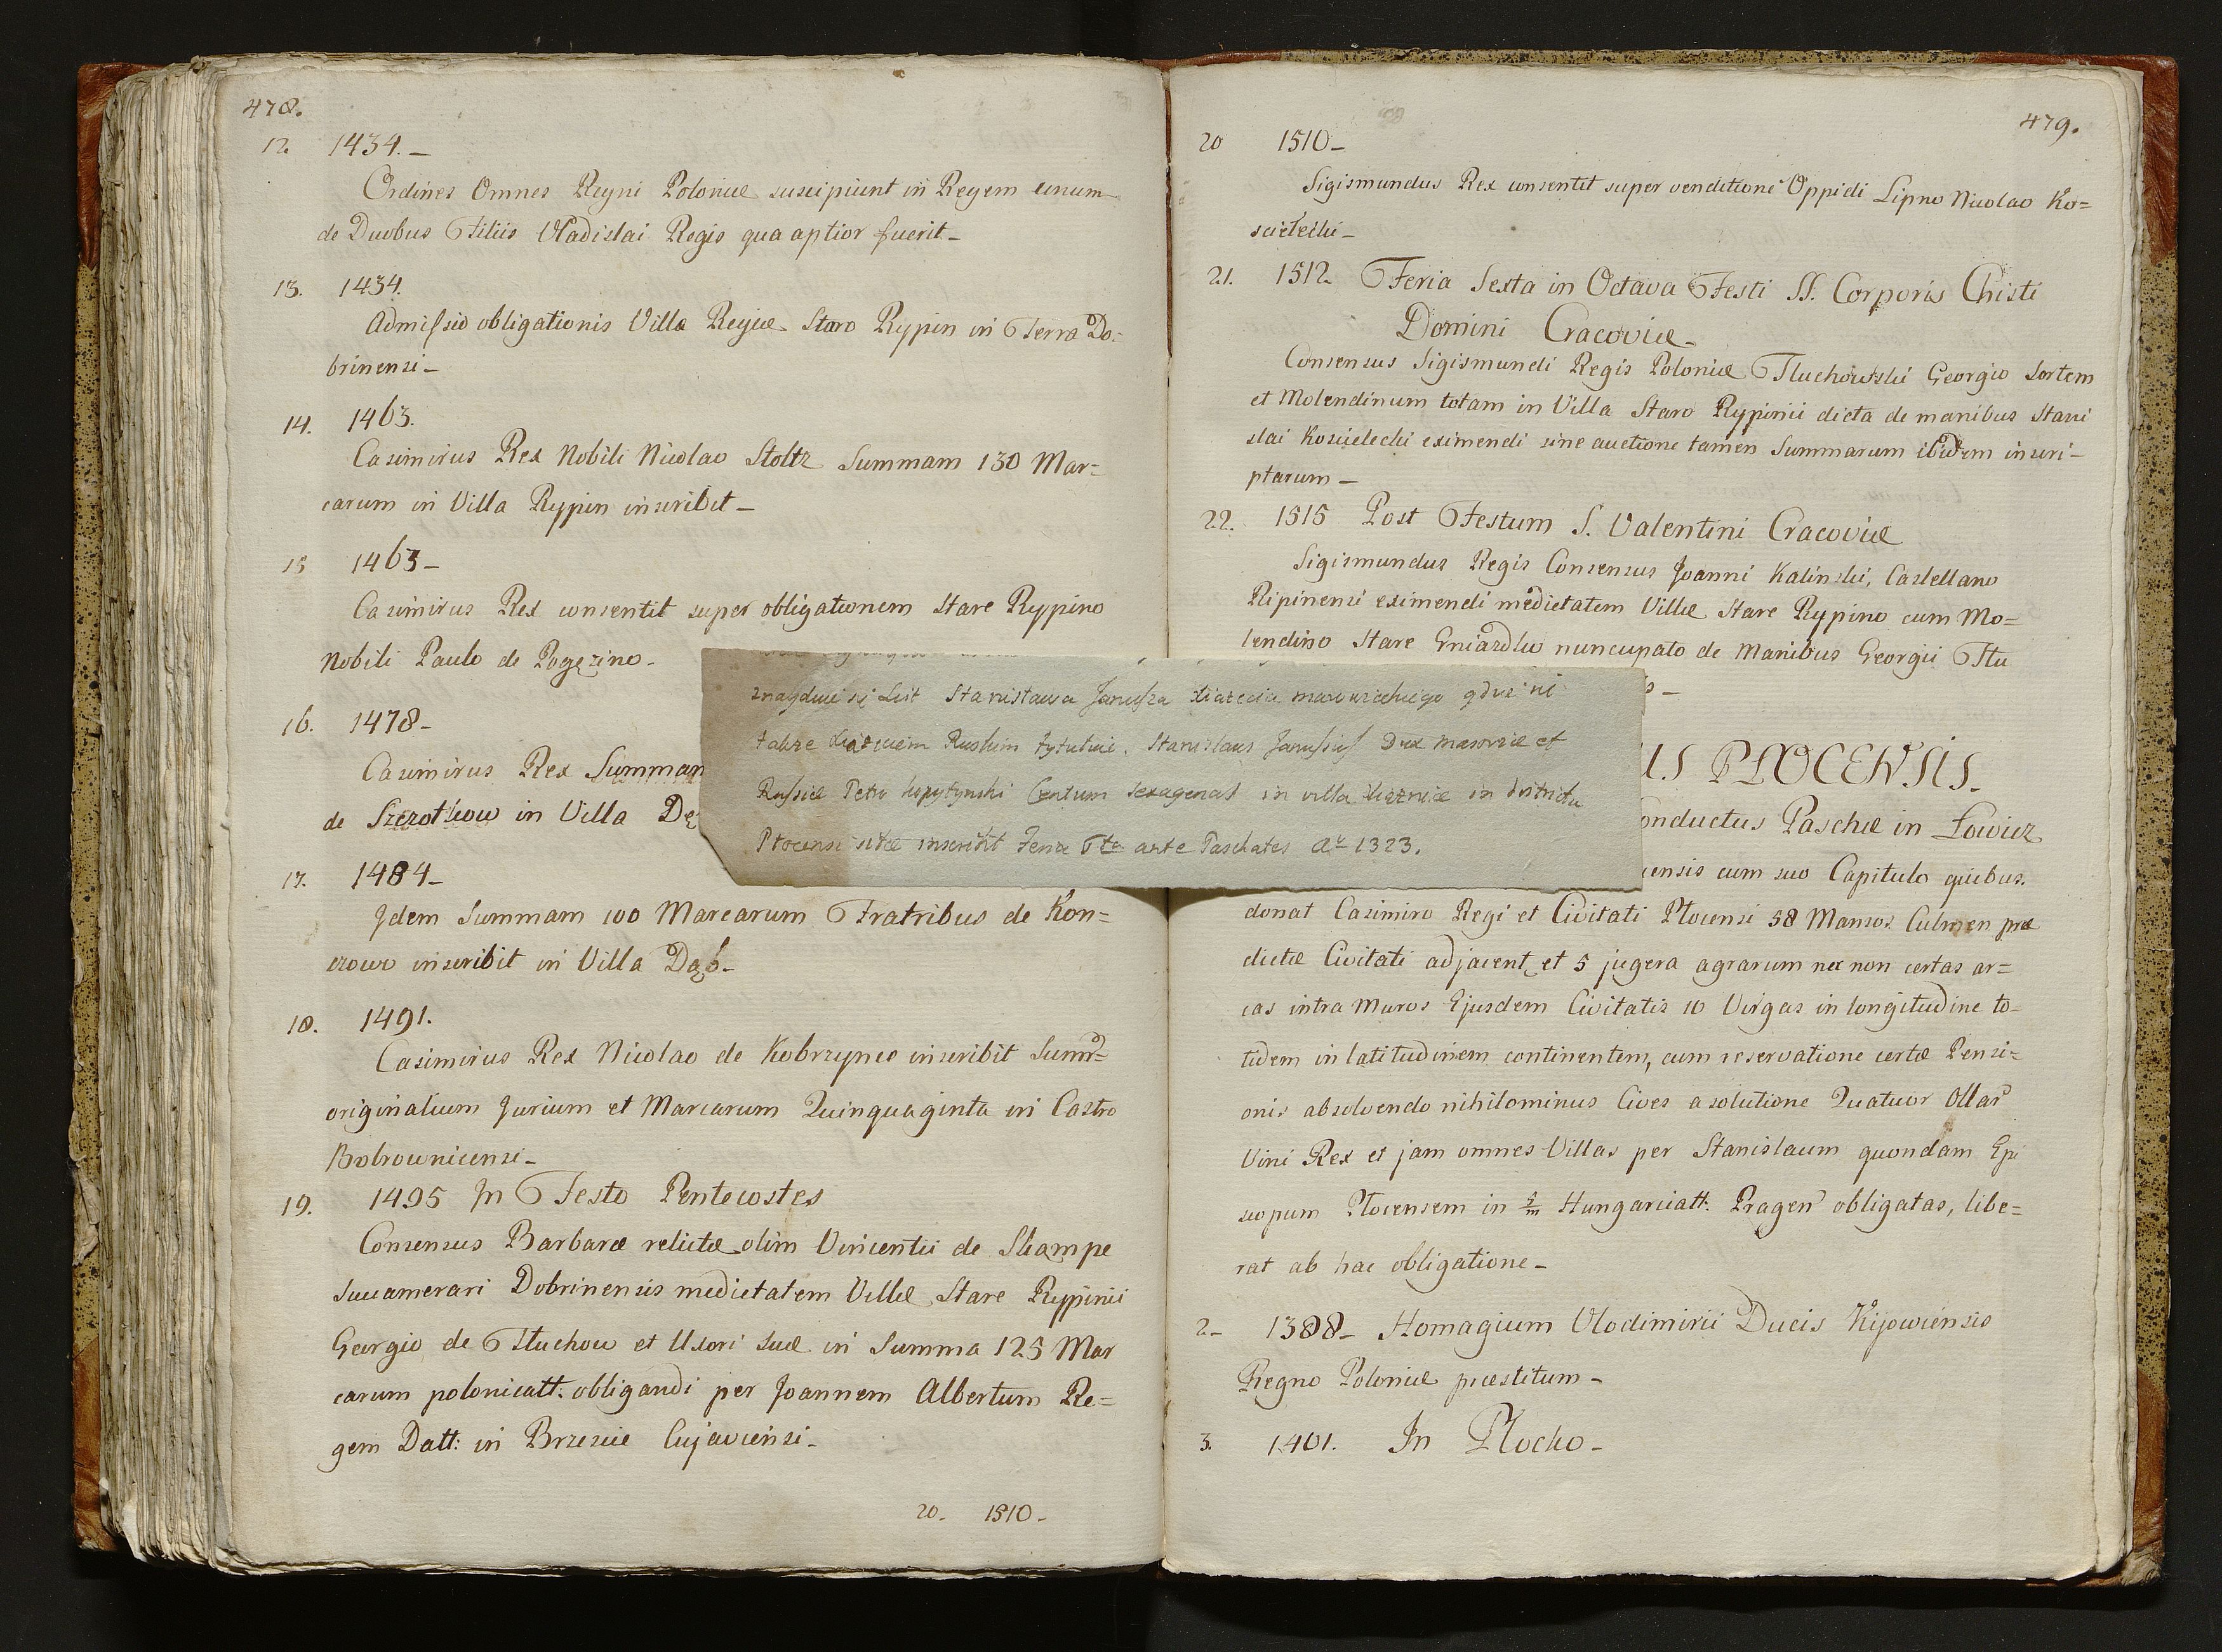 478.
12. 1434. –
Ordines Omnes Regni Poloniæ suscipiunt in Regem unum
de Duobus Filiis Vladislai Regis qua aptior fuerit –
13. 1434.
Admissio obligationis Villæ Regiæ Staro Rypin in Terra Do:
brinensi –
14. 1463.
Casimirus Rex Nobili Nicolao Stoltz Summam 130 Mar=
carum in Villa Rypin inscribit –
15 1463 –
Casimirus Rex consentit super obligationem Stare Rypino
Nobili Paulo de Pogezino –
16. 1478 –
Casimirus Rex Summam
de Szczotkow in Villa Dę
17. 1484 –
Jdem Summam 100 Marcarum Fratribus de Kon=
czowo inscribit in Villa Dąb –
18. 1491.
Casimirus Rex Nicolao de Kobrzynec inscribit Summ=
originalium Jurium et Marcarum Quinquaginta in Castro
Bobrownicensi –
19. 1495 Jn Festo Pentecostes
Consensus Barbaræ relictæ olim Vincentii de Skampe
Succamerari Dobrinensis medietatem Villæ Stare Rypinii
Georgio de Tłuchow et Uxori suæ in Summa 125 Mar
carum polonicatt: obligandi per Joannem Albertum Re=
gem Datt: in Brzescie Cujaviensi –
20. 1510 –
znayduie się List Stanisława Janusza xiążęcia mazowieckiego gdzie ni
także xiążęciem Ruskim tytułuie. Stanislaus Janussius Dux masoviæ et
Russiæ Petro Lopytynski Centum sexagenas in villa in districtu
Plocensi sitæ inscribit Feria 6ta ante Paschates Ao 1323.
479.
20 1510 –
Sigismundus Rex consentit super venditione Oppidi Lipno Nicolao Ko=
scielecki –
21. 1512 Feria Sexta in Octava Festi SS. Corporis Christi
Domini Cracoviæ –
Consensus Sigismundi Regis Poloniæ Tluchowski Georgio sortem
et Molendinum totam in Villa Staro Rypinii dicta de manibus Stani
slai Koscielecki eximendi sine auctione tamen Summarum ibidem inscri –
ptarum –
22. 1515 Post Festum S. Valentini Cracoviæ
Sigismundus Regis Consensus Joanni Kalinski, Castellano
Ripinensi eximendi medietatem Villæ Stare Rypino cum Mo=
lendino Stare Gniazdko nuncupato de Manibus Georgii Tlu
US PŁOCENSIS –
onductus Paschæ in Łowicz
ensis cum suo Capitulo quibus.
donat Casimiro Regi et Civitati Plocensi 58 Mansos Culmen præ
dictæ Civitati adjacent, et 5 jugera agrarum nec non certas ar=
cas intra Muros Ejusdem Civitatis 10 Virgas in longitudine to –
tidem in latitudinem continentem, cum reservatione certæ Pensi=
onis absolvendo nihilominus Cives a solutione Quatuor Ollar
Vini Rex et jam omnes Villas per Stanislaum quondam Epi
scopum Plocensem in Hungaricatt: Pragen obligatas, libe=
rat ab hac obligatione –
2 – 1388 – Homagium Vlodimirii Ducis Kijowiensis
Regno Poloniæ præstitum –
3. 1401. Jn Plocko –